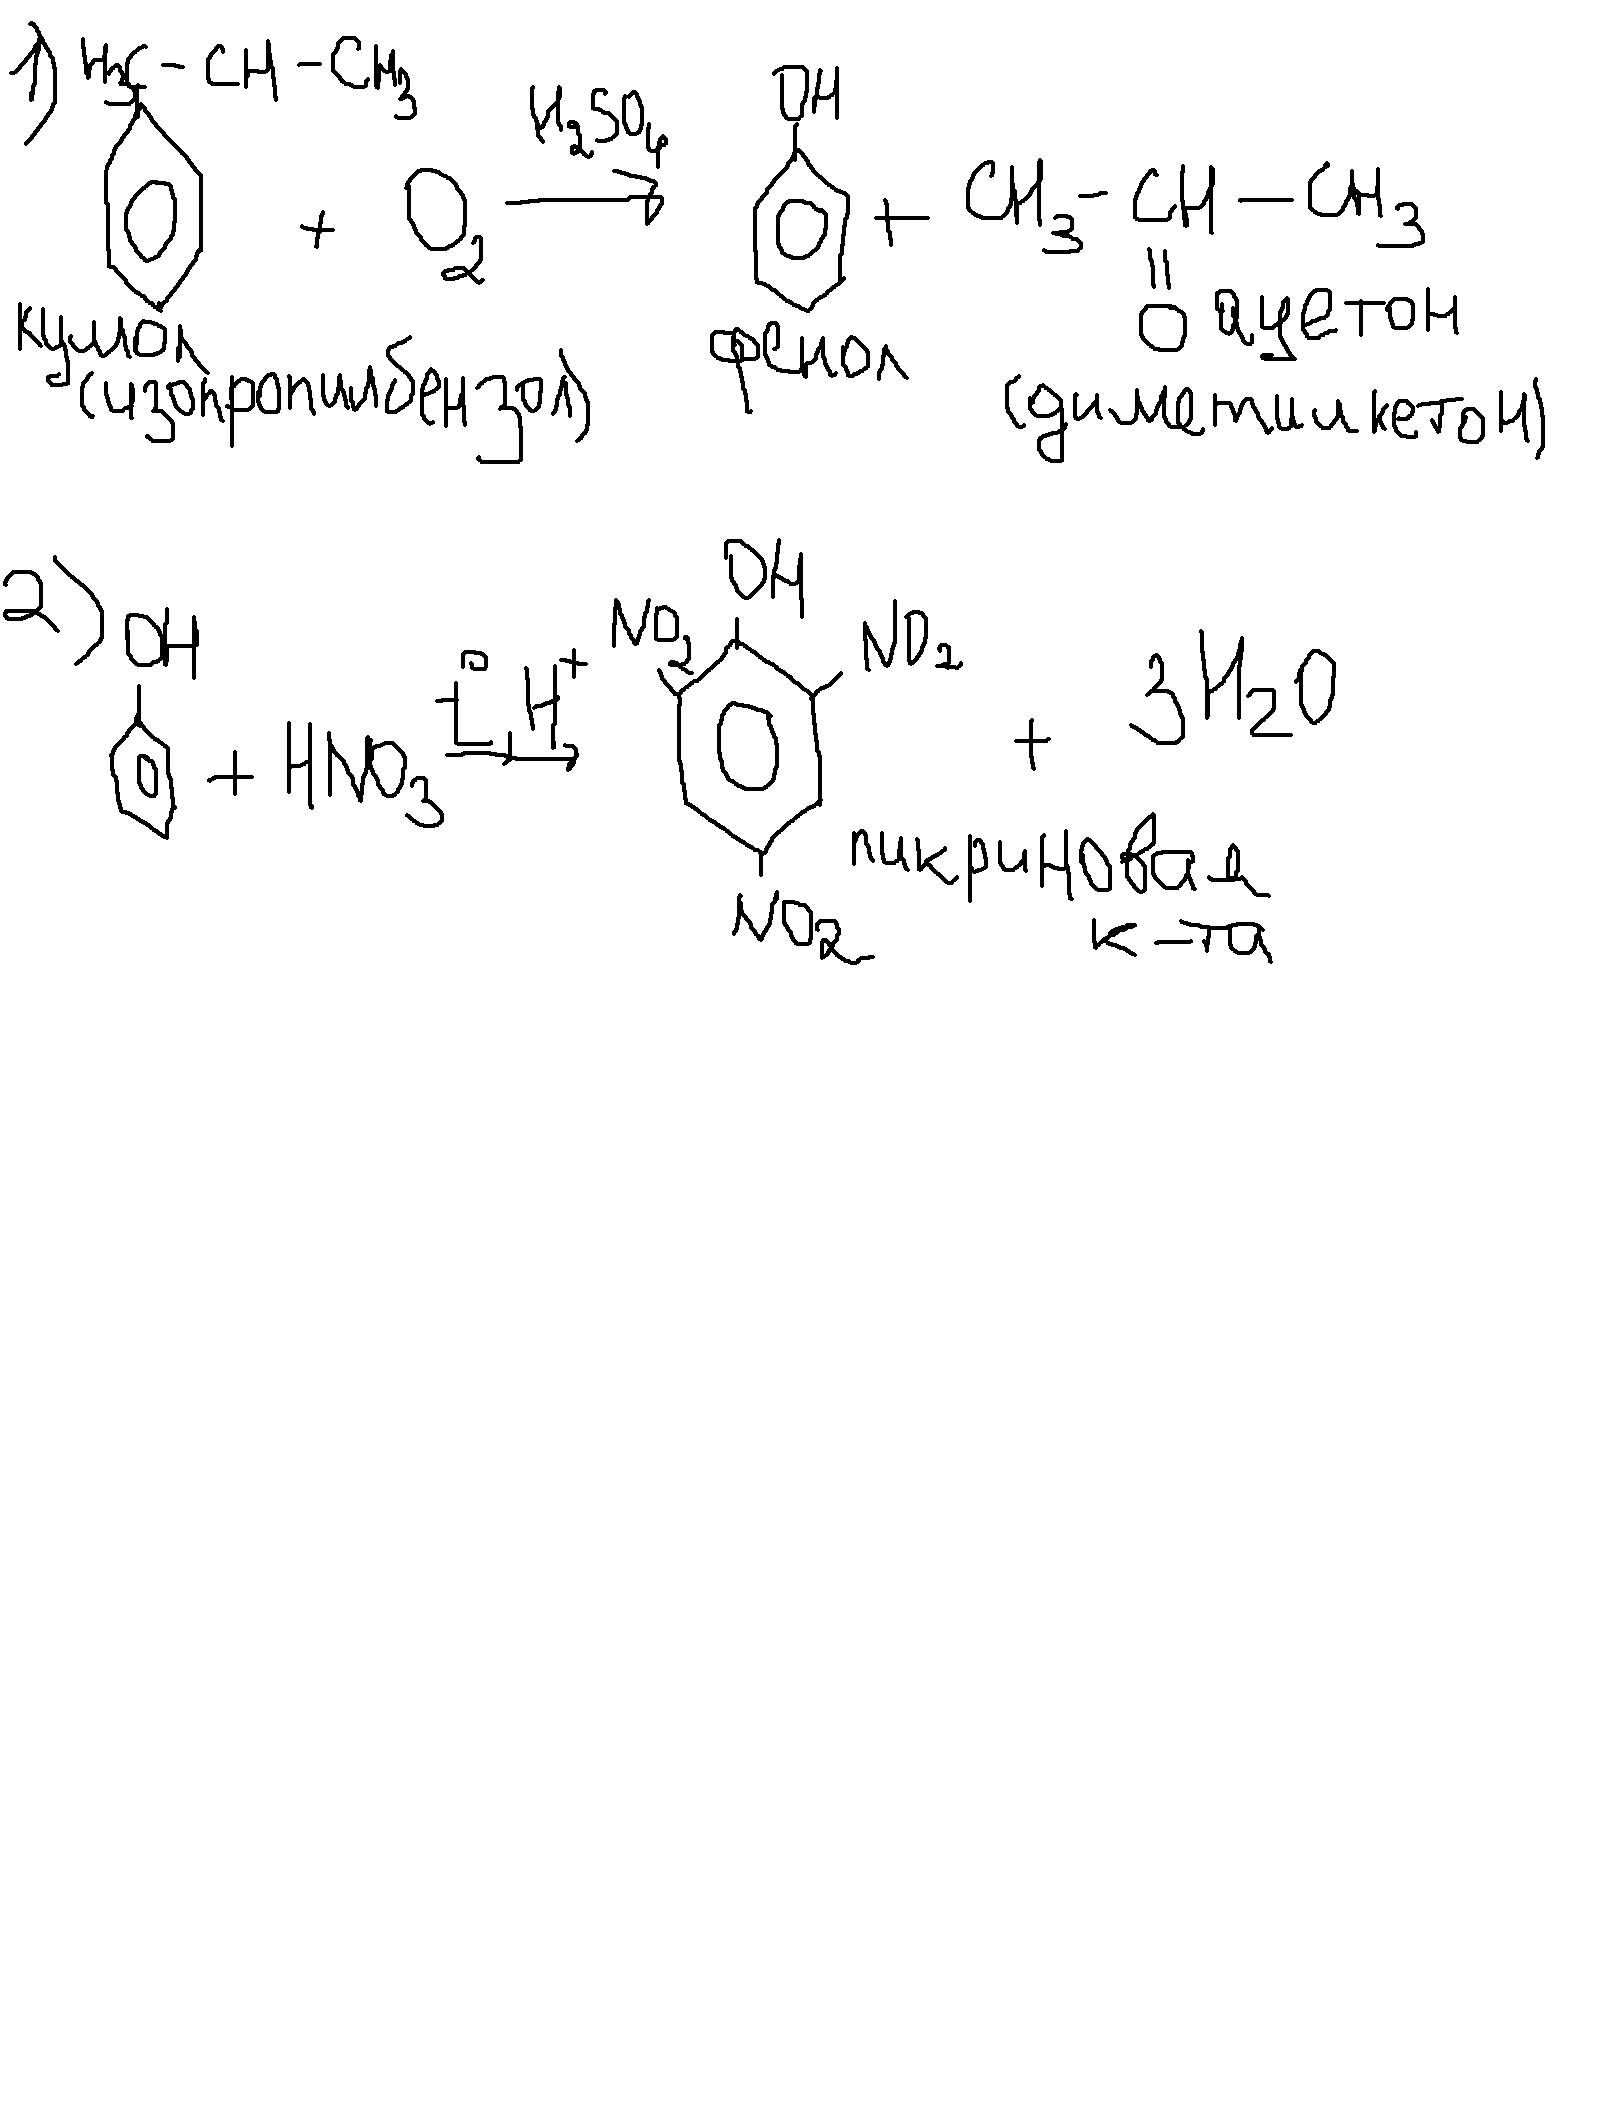 1) H₃C - CH - CH₃
+ O₂ H₂SO₄ → OH + CH₃ - CH - CH₃
|| O
кумол
(изопропилбензол)
фенол
ацетон
(диметилкетон)
2) OH + HNO₃ t°, H⁺ → OH NO₂ NO₂ NO₂ + 3H₂O
пикриновая
к-та